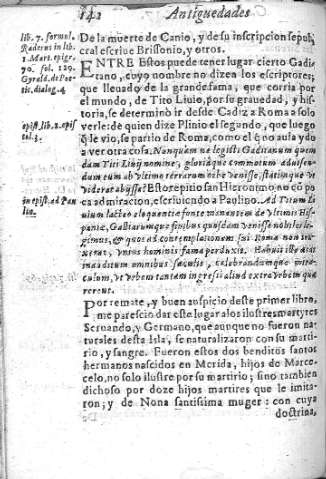 142 Antiguedades
lib. 7. formul.
Raderus in lib.
1. Mart. epigr.
70. fol. 129.
Gyrald. de Poe
tis dialog. 4
De la muerte de Canio, y de su inscripcion sepul
cral escriue Brissonio, y otros.
ENTRE Estos puede tener lugar cierto Gadi
tano, cuyo nombre no dizen los escriptores;
que lleuado de la grande fama, que corria por
el mundo, de Tito Liuio, por su grauedad, y his
toria, se determinò ir desde Cadiz a Roma a solo
verle: de quien dize Plinio el segundo, que luego
q̃ le vio, se partio de Roma, como el que no aula ydo
a ver otra cosa. Nunquam ne legisti Gaditanum quem
dam Titi Liuij nomine, gloriaque commotum ad visen-
dum eum ab vltimo terrarum orbe venisse, statimque vt
viderat abijsse? Esto repitio san Hieronimo no cõ po
ca admiracion, escriuiendo a Paulino. Ad Titum Li
uium lacteo eloquentiæ fonte manantem de vltimis His-
paniæ, Galliarumque finibus quosdam venisse nobiles le-
gimus, & quos ad contemplationem sui Roma non tra
xerat, vnius hominis fama perduxit. Habuit illa ætas
inauditum omnibus sæculis, celebrandumque mira-
culum, vt vrbem tantam ingressi aliud extra vrbem quæ
rerent.
epist. lib. 2. epis
tol. 3.
in epist. ad Pau
lin.
Por remate, y buen auspicio deste primer libro,
me parescio dar este lugar a los ilustres martyres
Seruando, y Germano, que aunque no fueron na-
turales desta Isla, se naturalizaron con su marti-
rio, y sangre. Fueron estos dos benditos santos
hermanos nascidos en Merida, hijos de Marce-
celo, no solo ilustre por su martirio; sino tambien
dichoso por doze hijos martires que le imita-
ron; y de Nona santissima muger: con cuya
doctrina,